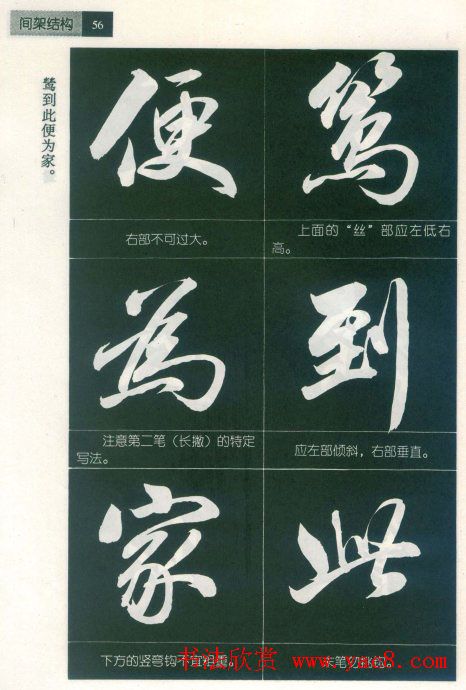 间架结构 56
鸶到此便为家。
鸶
上面的“丝”部应左低右
高。
到
应左部倾斜，右部垂直。
此
末笔勿挑钩。
便
右部不可过大。
為
注意第二笔（长撇）的特定
写法。
家
下方的竖弯钩不宜粗重。
书法欣赏 www.yac8.com